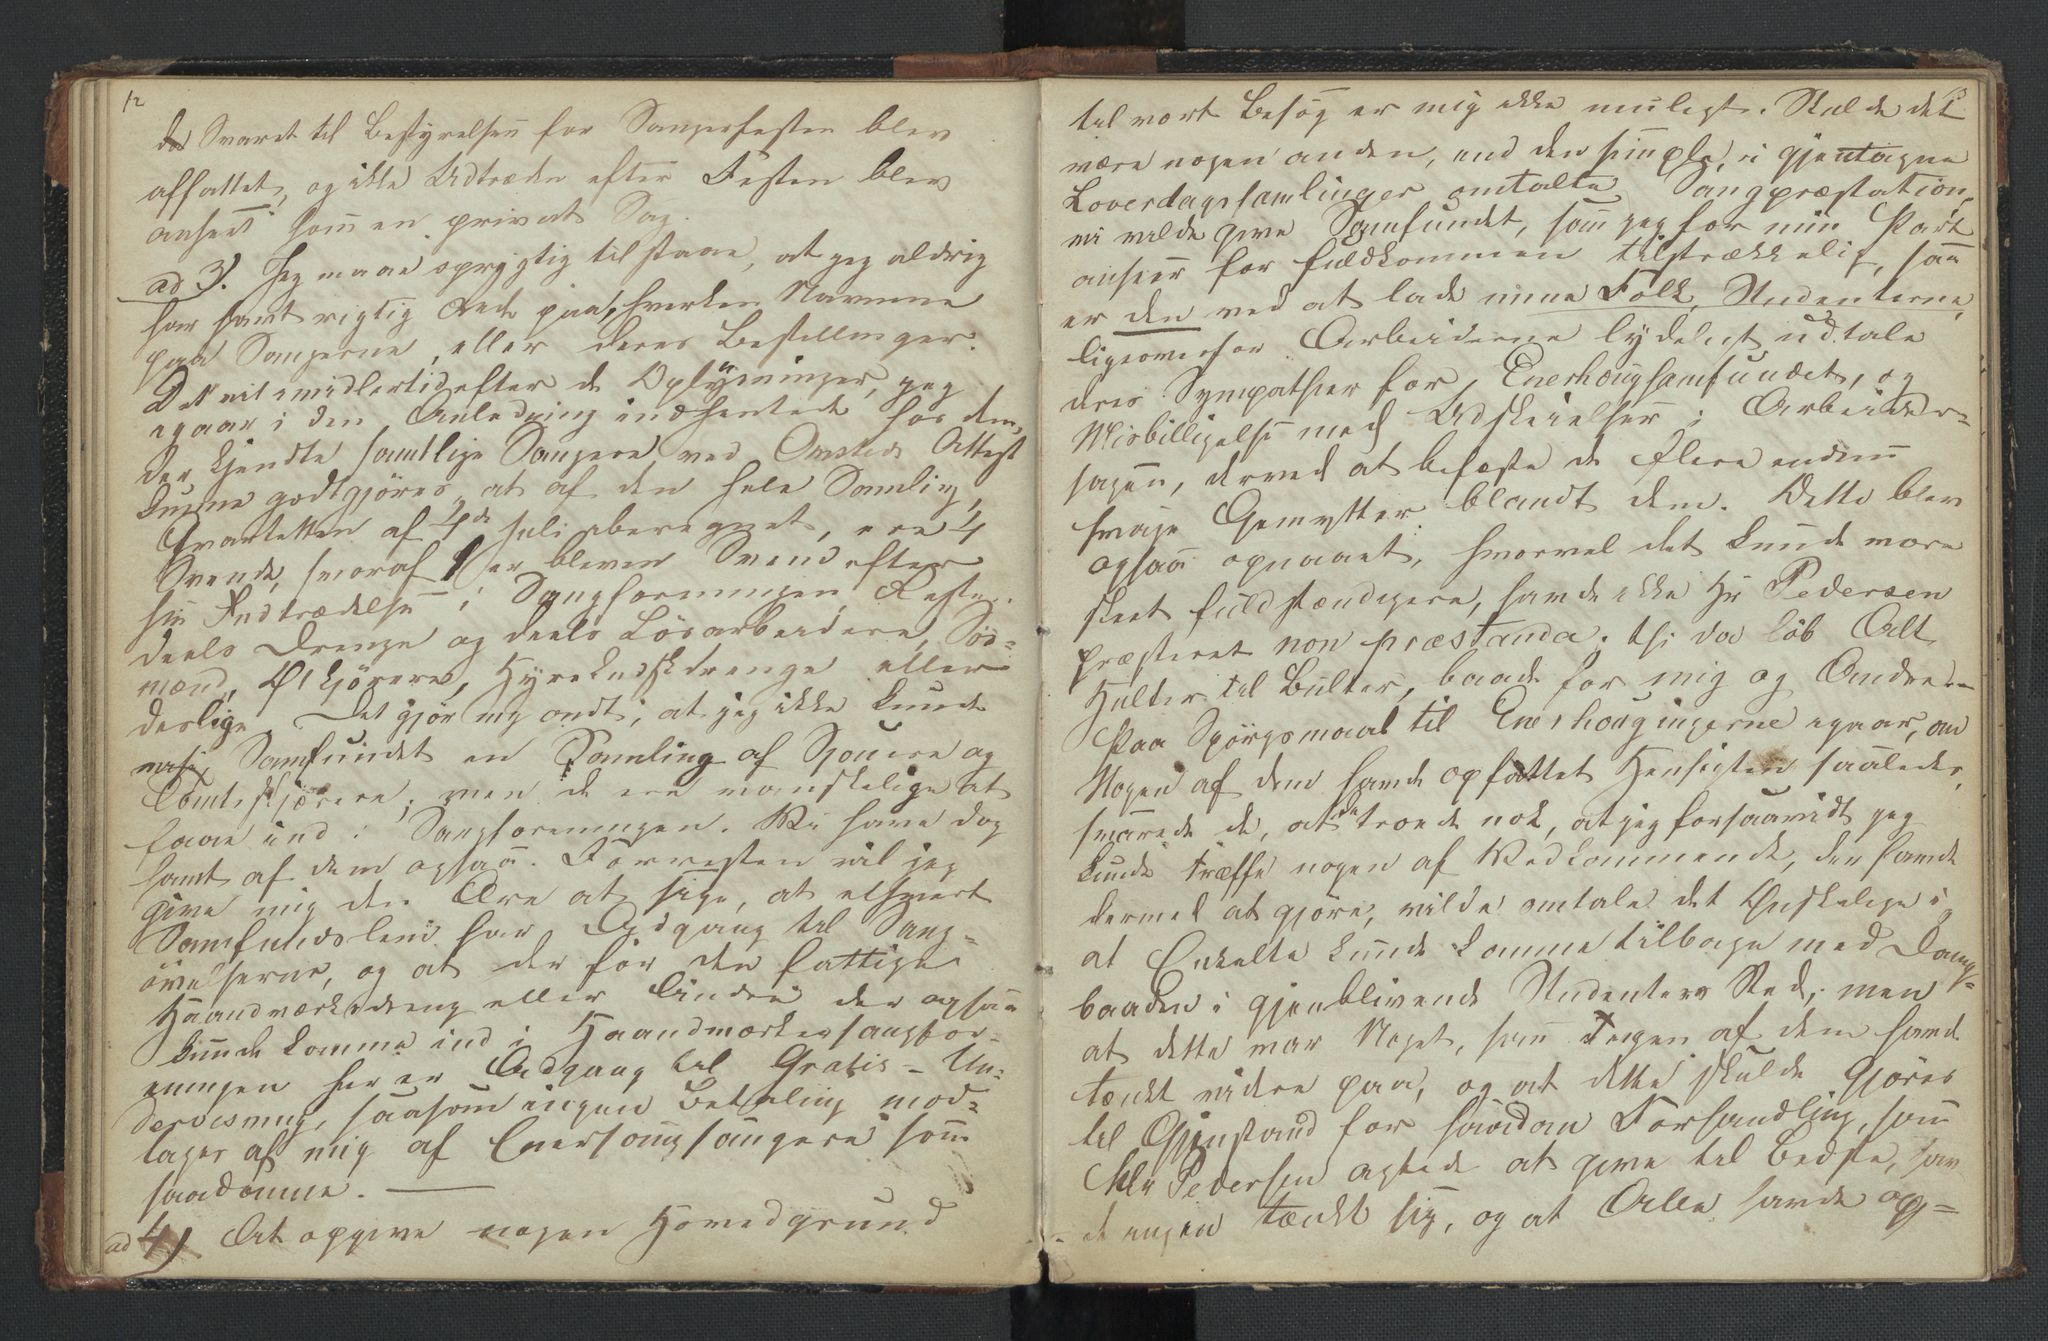 12
da Svaret til Bestyrelsen for Sangerfesten blev
affattet, og ikke Udtræden efter Festen blev
anseet som en privat Sag.
ad 3. Jeg maae oprigtig tilstaae, at jeg aldrig
har havt rigtig Rede paa, hverken Navnene
paa Sangerne, eller deres Bestillinger.
Det vil imidlertid efter de Oplysninger, jeg
igaar i den Anledning indhentede hos dem,
der kjendte samtlige Sangere ved Attest
kunne godtgjøres, at af den hele Samling,
Qvartetten af 4de Juli iberegnet, ere 4
Svende, hvoraf 1 er bleven Svend efter
sin Indtrædelse i Sangforeningen, Resten
deels Drenge og deels Løsarbeidere, Sø-
mænd, Ølkjørere, Hyrekudskdrenge eller
deslige. Det gjør mig ondt, at jeg ikke kunde
Samfundet en Samling af Sjouere og
Tomtekjørere; men de ere vanskelige at
faae ind i Sangforeningen. Vi have dog
havt af dem ogsaa. Forresten vil jeg
give mig den Ære at sige, at ethvert
Samfundslem har Adgang til Sang-
øvelserne, og at der for den fattige
Haandværksdreng eller Andre der ogsaa
kunde komme ind i Haandværkersangfor-
eningen her er Adgang til Gratis-Un-
dervisning, saasom ingen Betaling mod-
tages af mig af Enerhougsangere som
saadanne.
ad 4) At opgive nogen Hovedgrund
13
til vort Besøg er mig ikke muligt. Skulde det
være nogen anden, end den simple, i gjentagne
Løverdagssamlinger omtalte Sangpræstation,
vi vilde give Samfundet, som jeg for min Part
anseer for fuldkommen tilstrækkelig, saa
er den ved at lade mine Folk, Studenterne,
ligeoverfor Arbeiderne lydeligt udtale
deres Sympathier for Enerhougsamfundet, og
Misbilligelse med Udskeielser i Arbeider-
sagen, derved at befæste de flere endnu
svage Gemytter blandt dem. Dette blev
ogsaa opnaaet, hvorvel det kunde være
skeet fuldstændigere, havde ikke Hr Pedersen
præsteret non præstanda; thi da løb Alt
Hulter til Bulter, baade for mig og Andre.
Paa Spørgsmaal til Enerhougingerne igaar, om
Nogen af dem havde opfattet Hensigten saaledes,
svarede de, at de troede nok, at jeg forsaavidt jeg
kunde træffe nogen af Vedkommende, der havde
dermed at gjøre, vilde omtale det Ønskelige i,
at Enkelte kunde komme tilbage med Damp-
baaden i gjenblivende Studenters Sted; men
at dette var Noget, som Ingen af dem havde
tænkt videre paa, og at dette skulde gjøres
til Gjenstand for saadan Forhandling, som
Hr Pedersen agtede at give til Bedste, hav-
de ingen tænkt sig, og at Alle havde op-